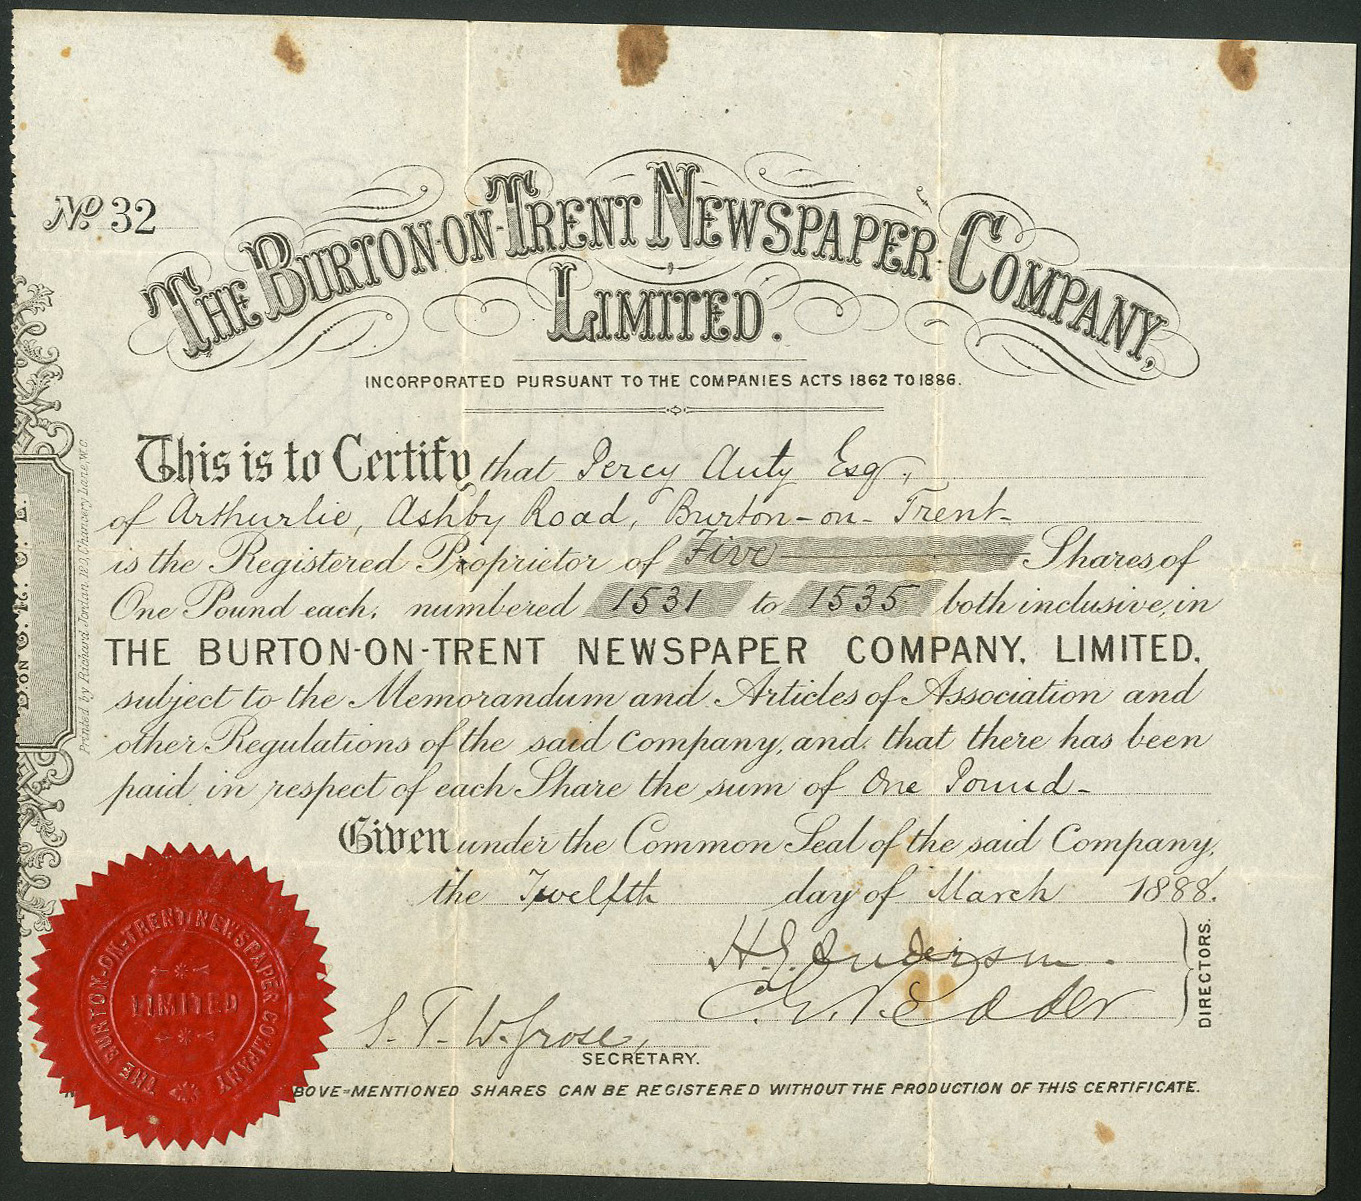 No 32
THE BURTON-ON-TRENT NEWSPAPER COMPANY,
LIMITED.
INCORPORATED PURSUANT TO THE COMPANIES ACTS 1862 TO 1886.
This is to Certify that Percy Auty Esq.,
of Arthurlie, Ashby Road, Burton-on-Trent
is the Registered Proprietor of Five Shares of
One Pound each, numbered 1531 to 1535 both inclusive, in
THE BURTON-ON-TRENT NEWSPAPER COMPANY, LIMITED,
subject to the Memorandum and Articles of Association and
other Regulations of the said Company, and that there has been
paid in respect of each Share the sum of One Pound-
Given under the Common Seal of the said Company,
the Twelfth day of March 1888.
H. G. Anderson.
DIRECTORS.
S. T. W.
SECRETARY.
BOVE-MENTIONED SHARES CAN BE REGISTERED WITHOUT THE PRODUCTION OF THIS CERTIFICATE.
THE BURTON-ON-TRENT NEWSPAPER COMPANY
LIMITED
Printed by Richard Jordan 120, Chancery Lane, W.C.